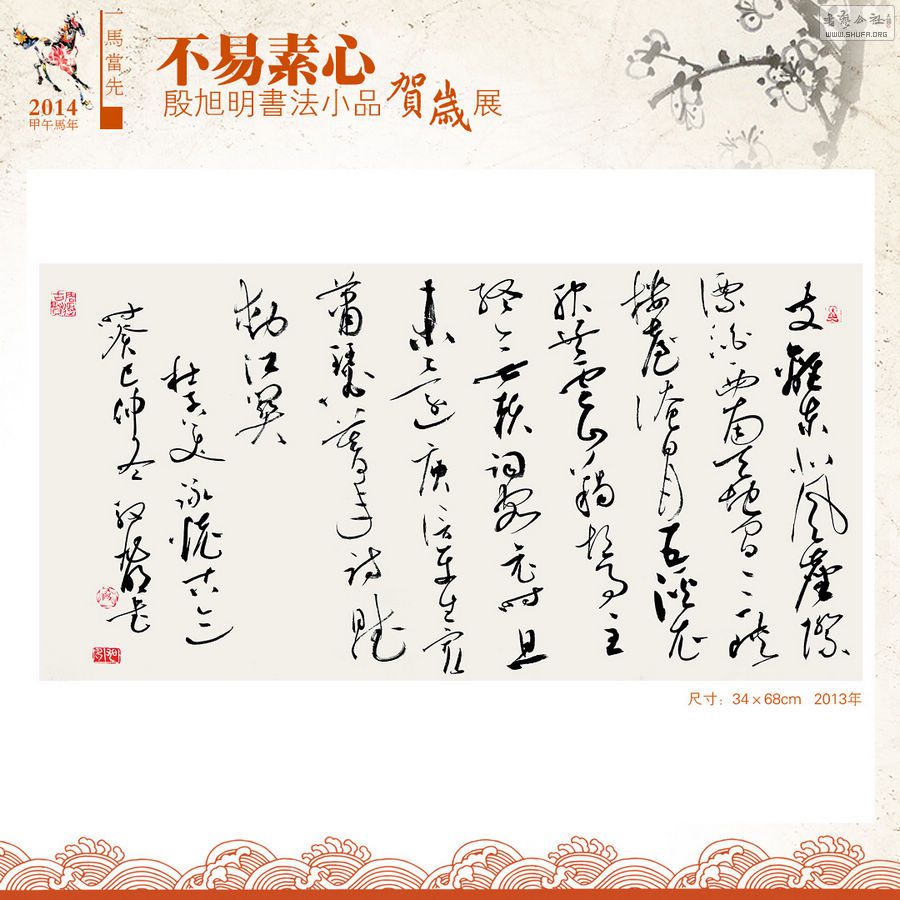 2014
甲午馬年
一馬當先
不易素心
殷旭明書法小品賀歲展
書藝公社
WWW.SHUFA.ORG
支離東北風塵際
漂泊西南天地間三峽
樓臺淹日月五溪衣
服共雲山羯胡事主
終無賴詞客哀時且
未還庾信平生最
蕭瑟暮年詩賦
動江關
杜子美詠懷古
癸巳仲冬殷旭明書
尺寸：34×68cm 2013年